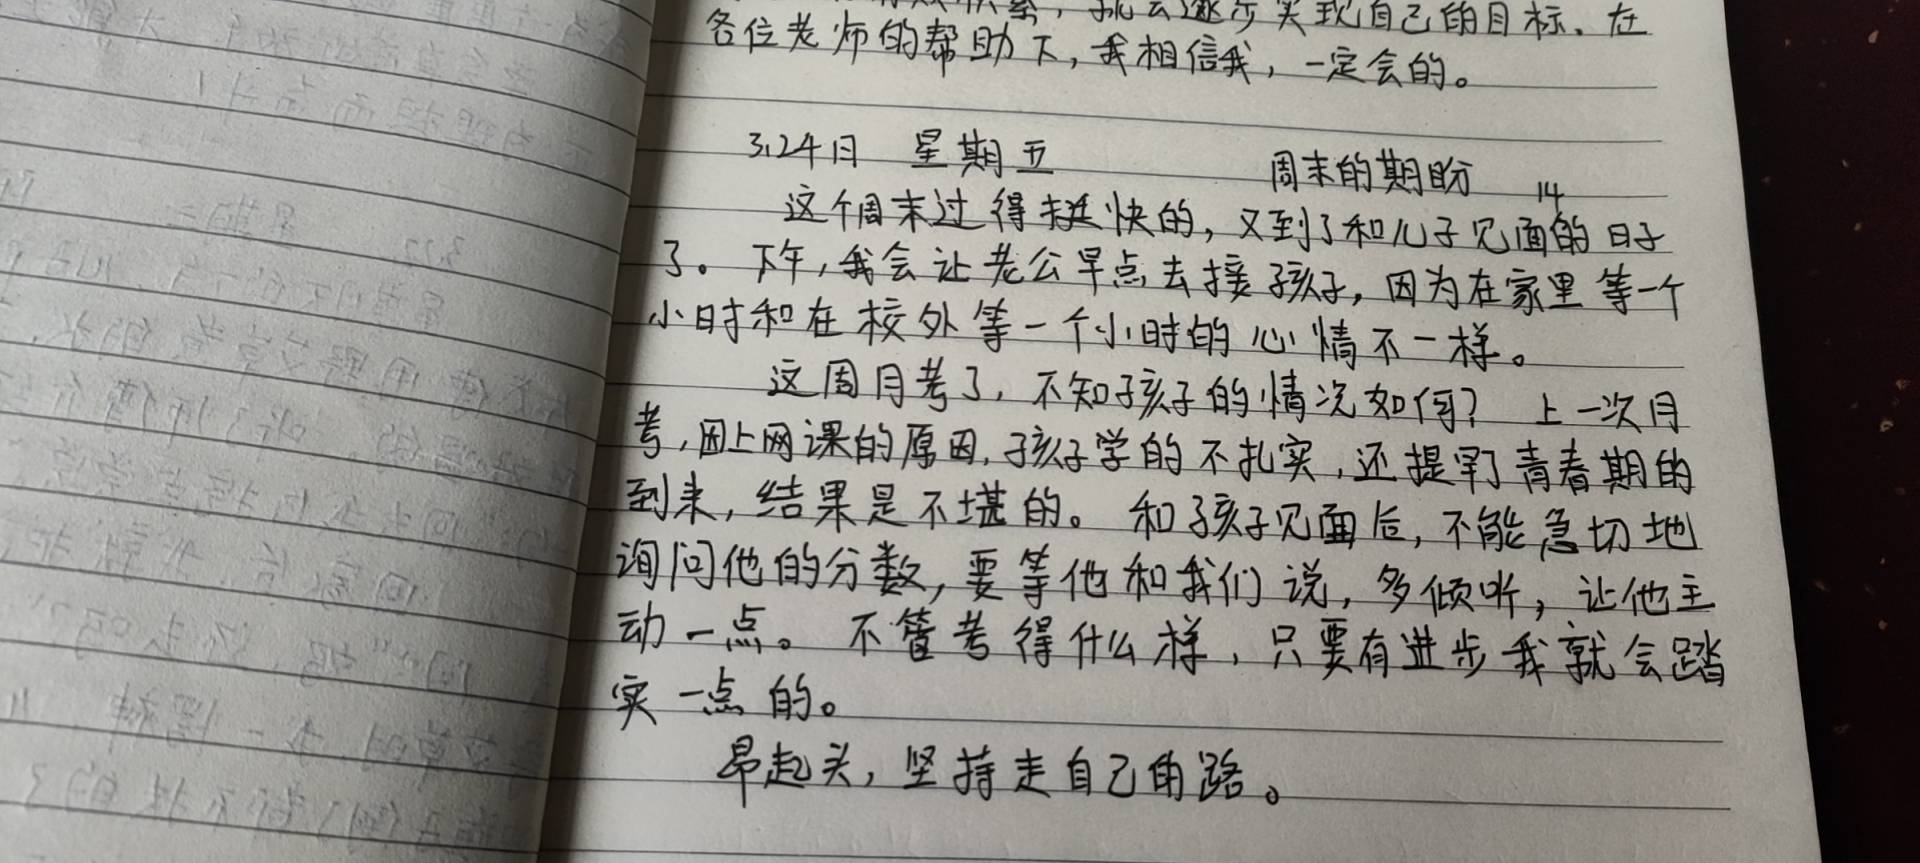 就会逐步实现自己的目标、在
各位老师的帮助下,我相信我,一定会的。
3.24日 星期五 周末的期盼 14
这个周末过得挺快的,又到了和儿子见面的日子
了。下午,我会让老公早点去接孩子,因为在家里等一个
小时和在校外等一个小时的心情不一样。
这周月考了,不知孩子的情况如何? 上一次月
考,因上网课的原因,孩子学的不扎实,还提早了青春期的
到来,结果是不堪的。和孩子见面后,不能急切地
询问他的分数,要等他和我们说,多倾听,让他主
动一点。不管考得什么样,只要有进步我就会踏
实一点的。
昂起头,坚持走自己的路。